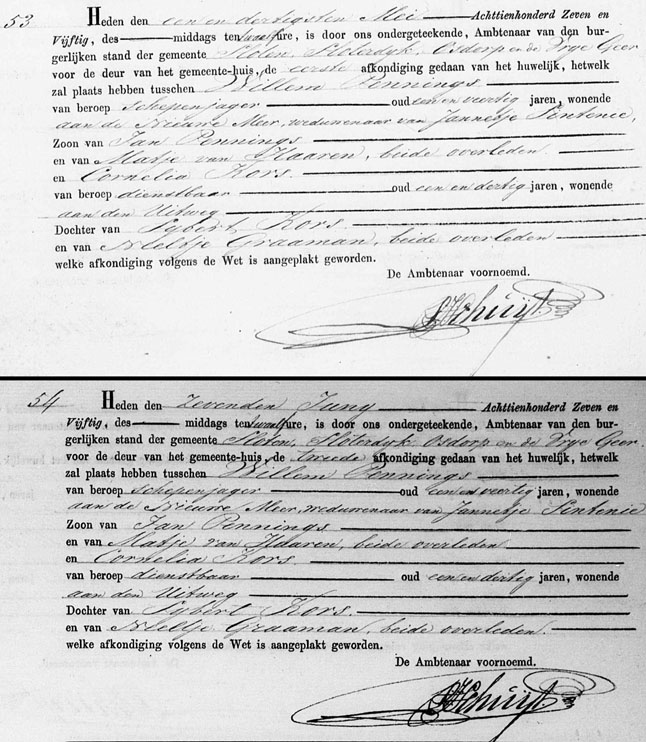 53 Heden den een en dertigsten Mei Achttienhonderd Zeven en
Vijftig, des middags ten twaalf ure, is door ons ondergeteekende, Ambtenaar van den bur-
gerlijken stand der gemeente Sloten, Sloterdyk, Osdorp en de Vrye Geer
voor de deur van het gemeente-huis, de eerste afkondiging gedaan van het huwelijk, hetwelk
zal plaats hebben tusschen Willem Pennings
van beroep Schepenjager oud een en veertig jaren, wonende
aan de Nieuwe Meer, weduwenaar van Jannetje Sintenie,
Zoon van Jan Pennings
en van Maatje van Haaren, beide overleden
en Cornelia Kors
van beroep dienstbaar oud een en dertig jaren, wonende
aan den Uitweg
Dochter van Sybert Kors
en van Neeltje Graaman, beide overleden
welke afkondiging volgens de Wet is aangeplakt geworden.
De Ambtenaar voornoemd.
54 Heden den Zevenden Juny Achttienhonderd Zeven en
Vijftig, des middags ten twaalf ure, is door ons ondergeteekende, Ambtenaar van den bur-
gerlijken stand der gemeente Sloten, Sloterdyk, Osdorp en de Vrye Geer
voor de deur van het gemeente-huis, de tweede afkondiging gedaan van het huwelijk, hetwelk
zal plaats hebben tusschen Willem Pennings
van beroep Schepenjager oud een en veertig jaren, wonende
aan de Nieuwe Meer, weduwenaar van Jannetje Sintenie
Zoon van Jan Pennings
en van Maatje van Haaren, beide overleden
en Cornelia Kors
van beroep dienstbaar oud een en dertig jaren, wonende
aan den Uitweg
Dochter van Sybert Kors
en van Neeltje Graaman, beide overleden
welke afkondiging volgens de Wet is aangeplakt geworden.
De Ambtenaar voornoemd.